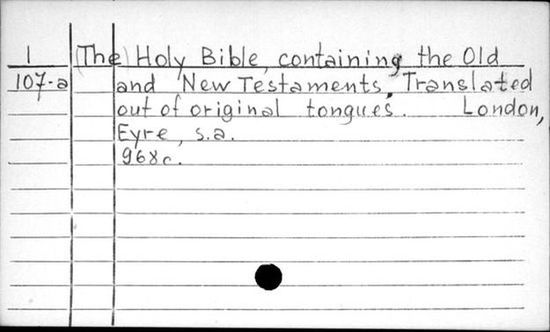 1 (The) Holy Bible, containing the Old
107-a and New Testaments. Translated
out of original tongues. London,
Eyre, s.a.
968c.